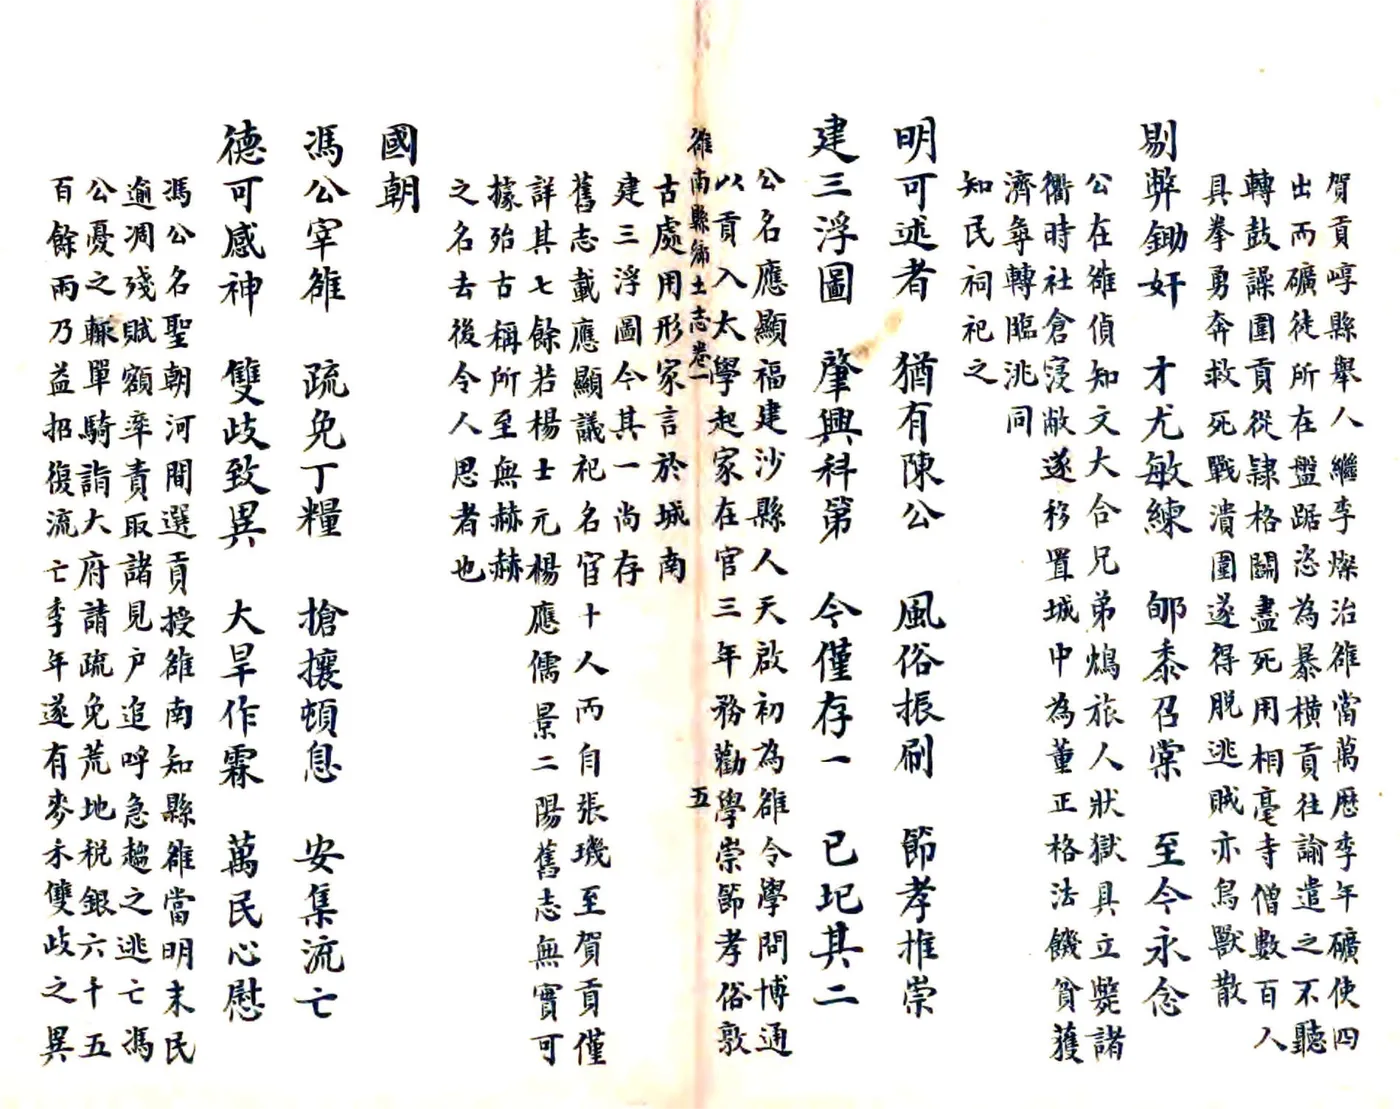 賀貢崞縣舉人繼李燦治雒當萬歷季年礦使四
出而礦徒所在盤踞恣為暴橫貢往諭遣之不聽
轉鼓譟圍貢從隷格鬬盡死用相毫寺僧數百人
具拳勇奔救死戰潰圍遂得脫逃賊亦鳥獸散
剔弊鋤奸 才尤敏練 郇黍召棠 至今永念
公在雒偵知文大合兄弟鴆旅人狀獄具立斃諸
衢時社倉寖敝遂移置城中為董正格法饑貧獲
濟每轉臨洮同
知民祠祀之
明可述者 猶有陳公 風俗振刷 節孝推崇
建三浮圖 肇興科第 今僅存一 已圯其二
公名應顯福建沙縣人天啟初為雒令學問博通
以貢入太學起家在官三年務勸學崇節孝俗敦
雒南縣鄉土志卷一 五
古處用形家言於城南
建三浮圖今其一尚存
舊志載應顯議祀名宦十人而自張璣至賀貢僅
詳其七餘若楊士元楊應儒景二陽舊志無實可
據殆古稱所至無赫赫
之名去後令人思者也
國朝
馮公宰雒 疏免丁糧 搶攘頓息 安集流亡
德可感神 雙歧致異 大旱作霖 萬民心慰
馮公名聖朝河間選貢授雒南知縣雒當明末民
逾凋殘賦額率責取諸見戶追呼急趨之逃亡馮
公憂之輙單騎詣大府請疏免荒地稅銀六千五
百餘兩乃益招復流亡季年遂有麥禾雙歧之異